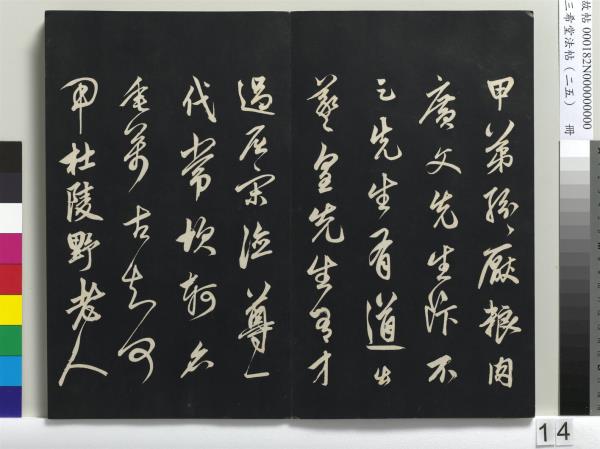 故帖 000182N000000000
三希堂法帖（二五） 冊
甲第紛々厭粮肉
廣文先生飯不
足先生有道出
羲皇先生有才
過屈宋德尊一
代常坎軻名
垂萬古知何
用杜陵野老人
14